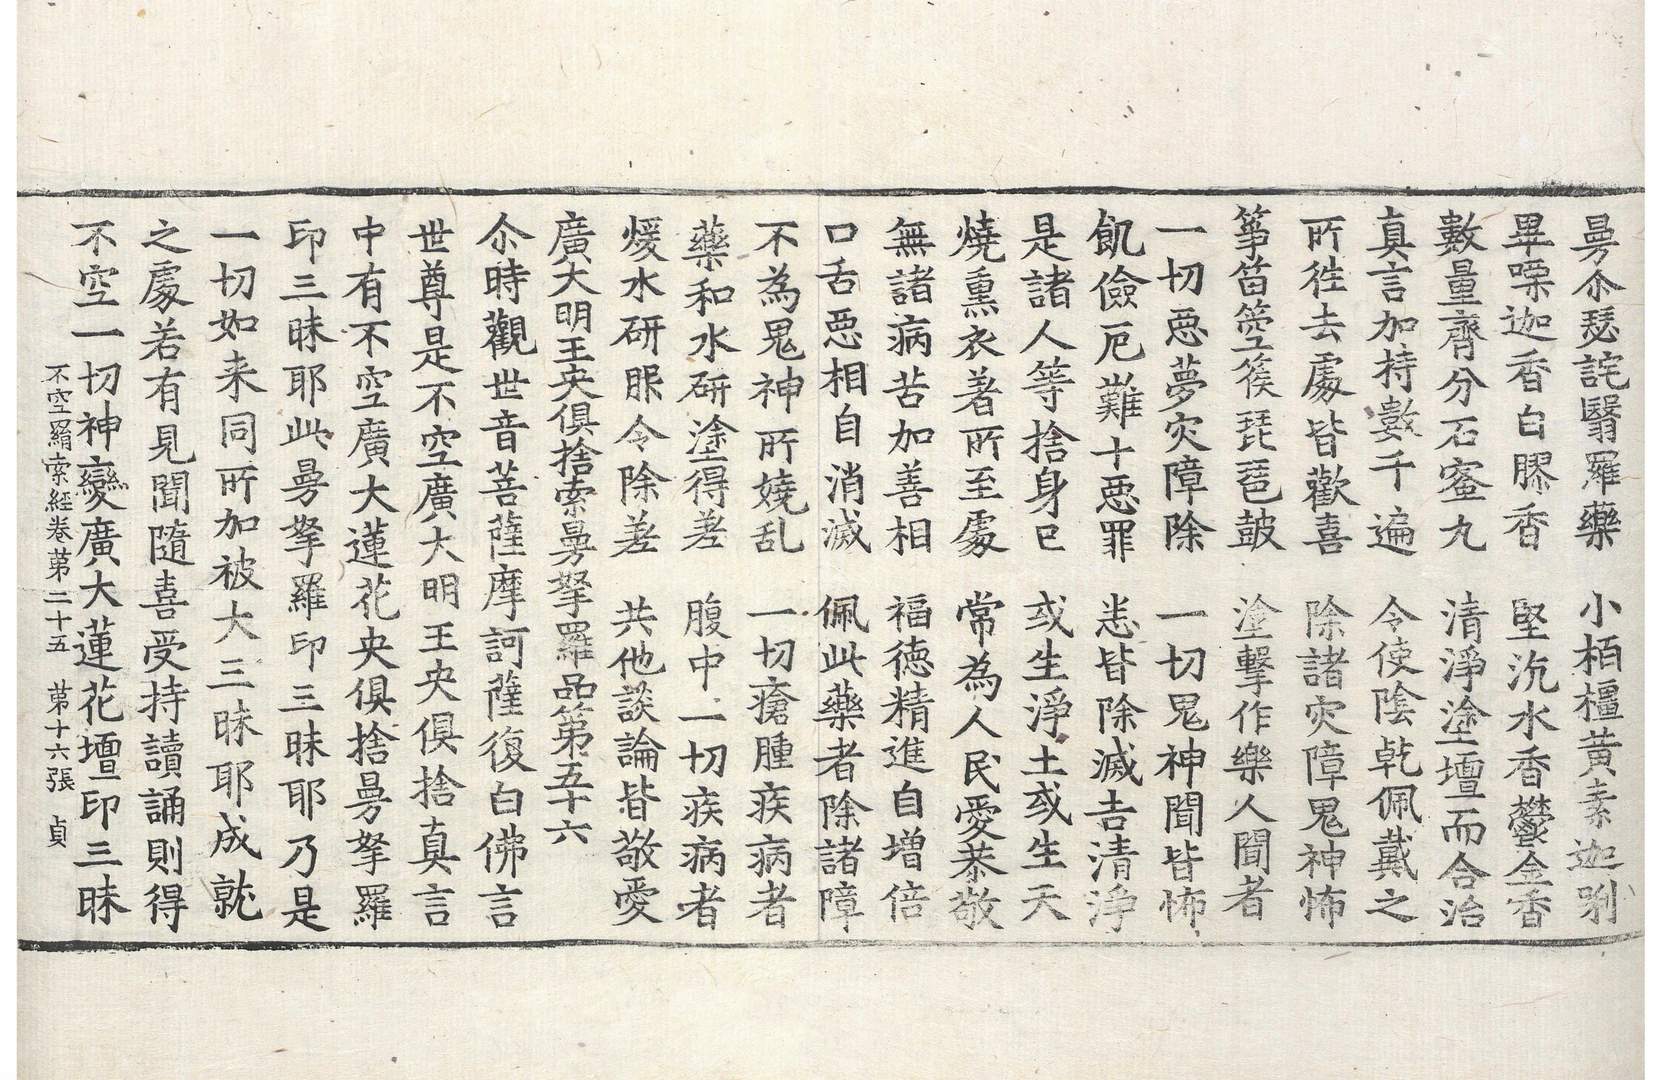 曼尒瑟詫翳羅藥　小栢橿黃素迦唎
畢㗚迦香白膠香　堅沉水香欝金香
數量齊分石蜜丸　清淨塗壇而合治
真言加持數千遍　令使陰乾佩戴之
所徃去處皆歡喜　除諸灾障鬼神怖
箏笛箜篌琵琶鼓　塗擊作樂人聞者
一切惡夢灾障除　一切鬼神聞皆怖
飢儉厄難十惡罪　恙皆除滅吉清淨
是諸人等捨身已　或生淨土或生天
燒熏衣著所至處　常為人民愛恭敬
無諸病苦加善相　福德精進自增倍
口舌惡相自消滅　佩此藥者除諸障
不為鬼神所嬈乱　一切瘡腫疾病者
藥和水研塗得差　腹中一切疾病者
煖水研服令除差　共他談論皆敬愛
廣大明王央俱捨索曼拏羅品第五十六
尒時觀世音菩薩摩訶薩復白佛言
世尊是不空廣大明王央俱捨真言
中有不空廣大蓮花央俱捨曼拏羅
印三昧耶此曼拏羅印三昧耶乃是
一切如来同所加被大三昧耶成就
之處若有見聞隨喜受持讀誦則得
不空一切神變廣大蓮花壇印三昧
不空羂索經卷第二十五　第十六張　貞